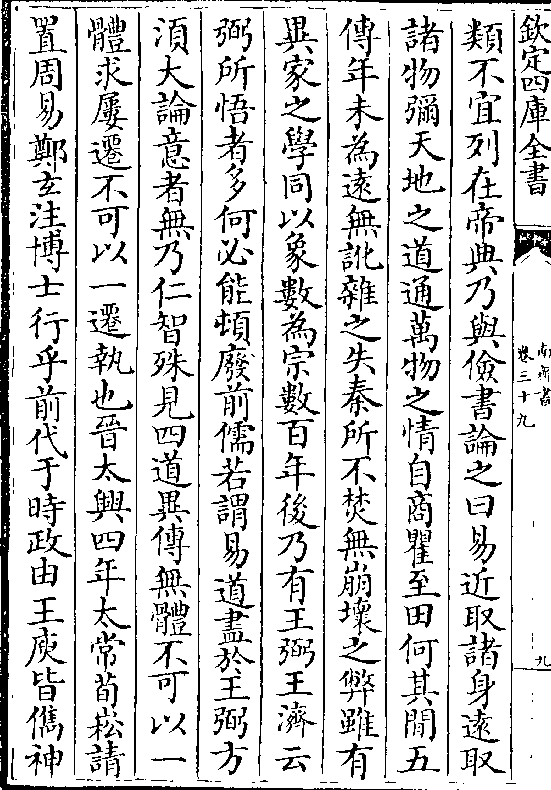 欽定四庫全書
南齊書
卷三十九
九
類不宜列在帝典乃與儉書論之曰易近取諸身遠取
諸物彌天地之道通萬物之情自商瞿至田何其間五
傳年未為遠無訛雜之失秦所不焚無崩壞之弊雖有
異家之學同以象數為宗數百年後乃有王弼王濟云
弼所悟者多何必能頓廢前儒若謂易道盡於王弼方
湏大論意者無乃仁智殊見四道異傳無體不可以一
體求屢遷不可以一遷執也晉太興四年太常荀崧請
置周易鄭玄注博士行乎前代于時政由王庾皆儁神